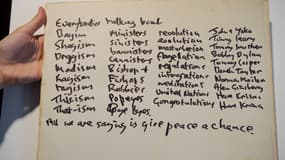 Everybodies talking bout
Bagism ministers revolution John & Yoko
Shagism sinisters evolution Timmy Leary
Dragism banisters masturbation Tommy Smothers
Madism cannisters flagelation Bobby Dylan
Ragism Bishops regulations Tommy Cooper
Tagism Fishops integrations Derek Taylor
Thisism Rabbies meditations Norman Mailer
That-ism Popeyes United Nations Alan Ginsberg
Bye Byes Congratulations Hare Krishna
Hare Krishna
All we are saying is give peace a chance.